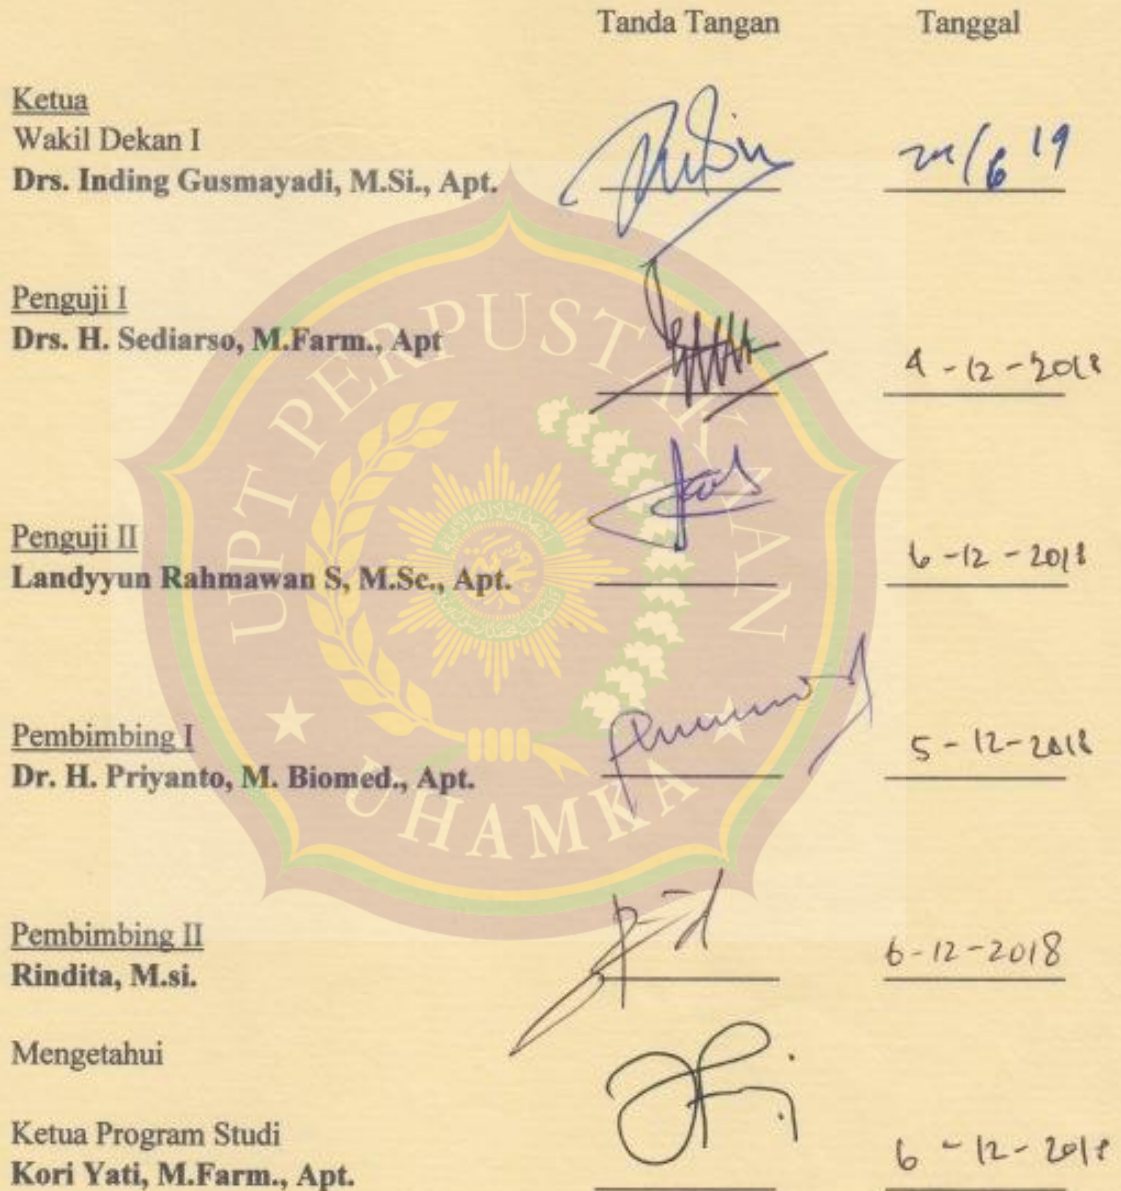 Tanda Tangan Tanggal
Ketua
Wakil Dekan I
Drs. Inding Gusmayadi, M.Si., Apt.
/6 19
Penguji I
Drs. H. Sediarso, M.Farm., Apt
4-12-2018
Penguji II
Landyyun Rahmawan S, M.Sc., Apt.
6-12-2018
Pembimbing I
Dr. H. Priyanto, M. Biomed., Apt.
5-12-2018
Pembimbing II
Rindita, M.si.
6-12-2018
Mengetahui
Ketua Program Studi
Kori Yati, M.Farm., Apt.
6-12-2018
UPT PERPUSTAKAAN
UHAMKA